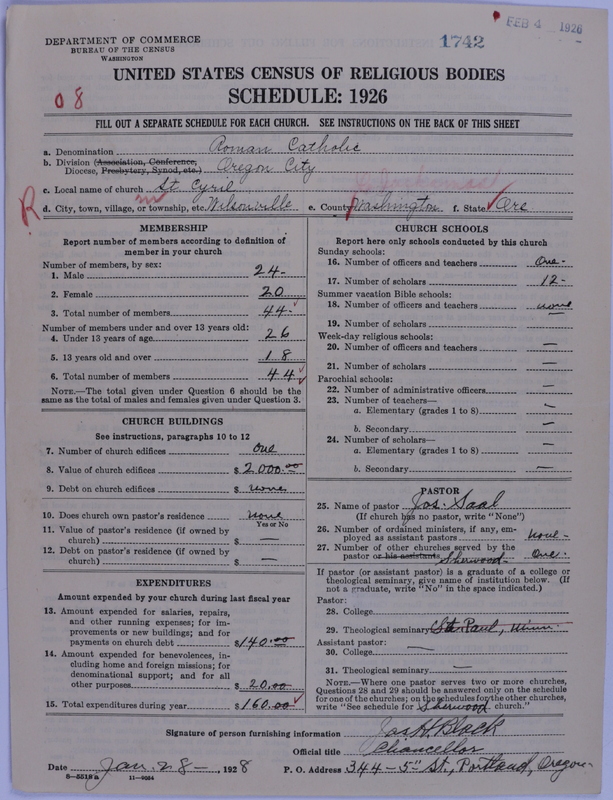 FEB 4 1926
DEPARTMENT OF COMMERCE
BUREAU OF THE CENSUS
WASHINGTON
1742
UNITED STATES CENSUS OF RELIGIOUS BODIES
08
SCHEDULE: 1926
FILL OUT A SEPARATE SCHEDULE FOR EACH CHURCH. SEE INSTRUCTIONS ON THE BACK OF THIS SHEET
a. Denomination Roman Catholic
b. Division (Association, Conference, Diocese, Presbytery, Synod, etc.) Oregon City
c. Local name of church St Cyril
Clackamas
R
d. City, town, village, or township, etc. Wilsonville e. County Washington f. State Ore
MEMBERSHIP
Report number of members according to definition of
member in your church
Number of members, by sex:
1. Male 24-
2. Female 20
3. Total number of members 44-
Number of members under and over 13 years old:
4. Under 13 years of age 26
5. 13 years old and over 18
6. Total number of members 44
NOTE.—The total given under Question 6 should be the
same as the total of males and females given under Question 3.
CHURCH BUILDINGS
See instructions, paragraphs 10 to 12
7. Number of church edifices One
8. Value of church edifices $2000.00
9. Debt on church edifices $ None
10. Does church own pastor's residence None
Yes or No
11. Value of pastor's residence (if owned by
church) $ —
12. Debt on pastor's residence (if owned by
church) $ —
EXPENDITURES
Amount expended by your church during last fiscal year
13. Amount expended for salaries, repairs,
and other running expenses; for im-
provements or new buildings; and for
payments on church debt $140.00
14. Amount expended for benevolences, in-
cluding home and foreign missions; for
denominational support; and for all
other purposes $20.00
15. Total expenditures during year $160.00
CHURCH SCHOOLS
Report here only schools conducted by this church
Sunday schools:
16. Number of officers and teachers One-
17. Number of scholars 12-
Summer vacation Bible schools:
18. Number of officers and teachers none
19. Number of scholars —
Week-day religious schools:
20. Number of officers and teachers —
21. Number of scholars —
Parochial schools:
22. Number of administrative officers —
23. Number of teachers—
a. Elementary (grades 1 to 8) —
b. Secondary —
24. Number of scholars—
a. Elementary (grades 1 to 8) —
b. Secondary —
PASTOR
25. Name of pastor Jos. Saal
(If church has no pastor, write "None")
26. Number of ordained ministers, if any, em-
ployed as assistant pastors None-
27. Number of other churches served by the
pastor or his assistants Sherwood- One.
If pastor (or assistant pastor) is a graduate of a college or
theological seminary, give name of institution below. (If
not a graduate, write "No" in the space indicated.)
Pastor:
28. College
29. Theological seminary St. Paul, Minn.
Assistant pastor:
30. College —
31. Theological seminary —
NOTE.—Where one pastor serves two or more churches,
Questions 28 and 29 should be answered only on the schedule
for one of the churches; on the schedules for the other churches,
write "See schedule for Sherwood church."
Signature of person furnishing information Jas H. Black
Official title Chancellor
Date Jan. 28-, 1928 P. O. Address 344-5" St., Portland, Oregon-
8-5519a 11-9034